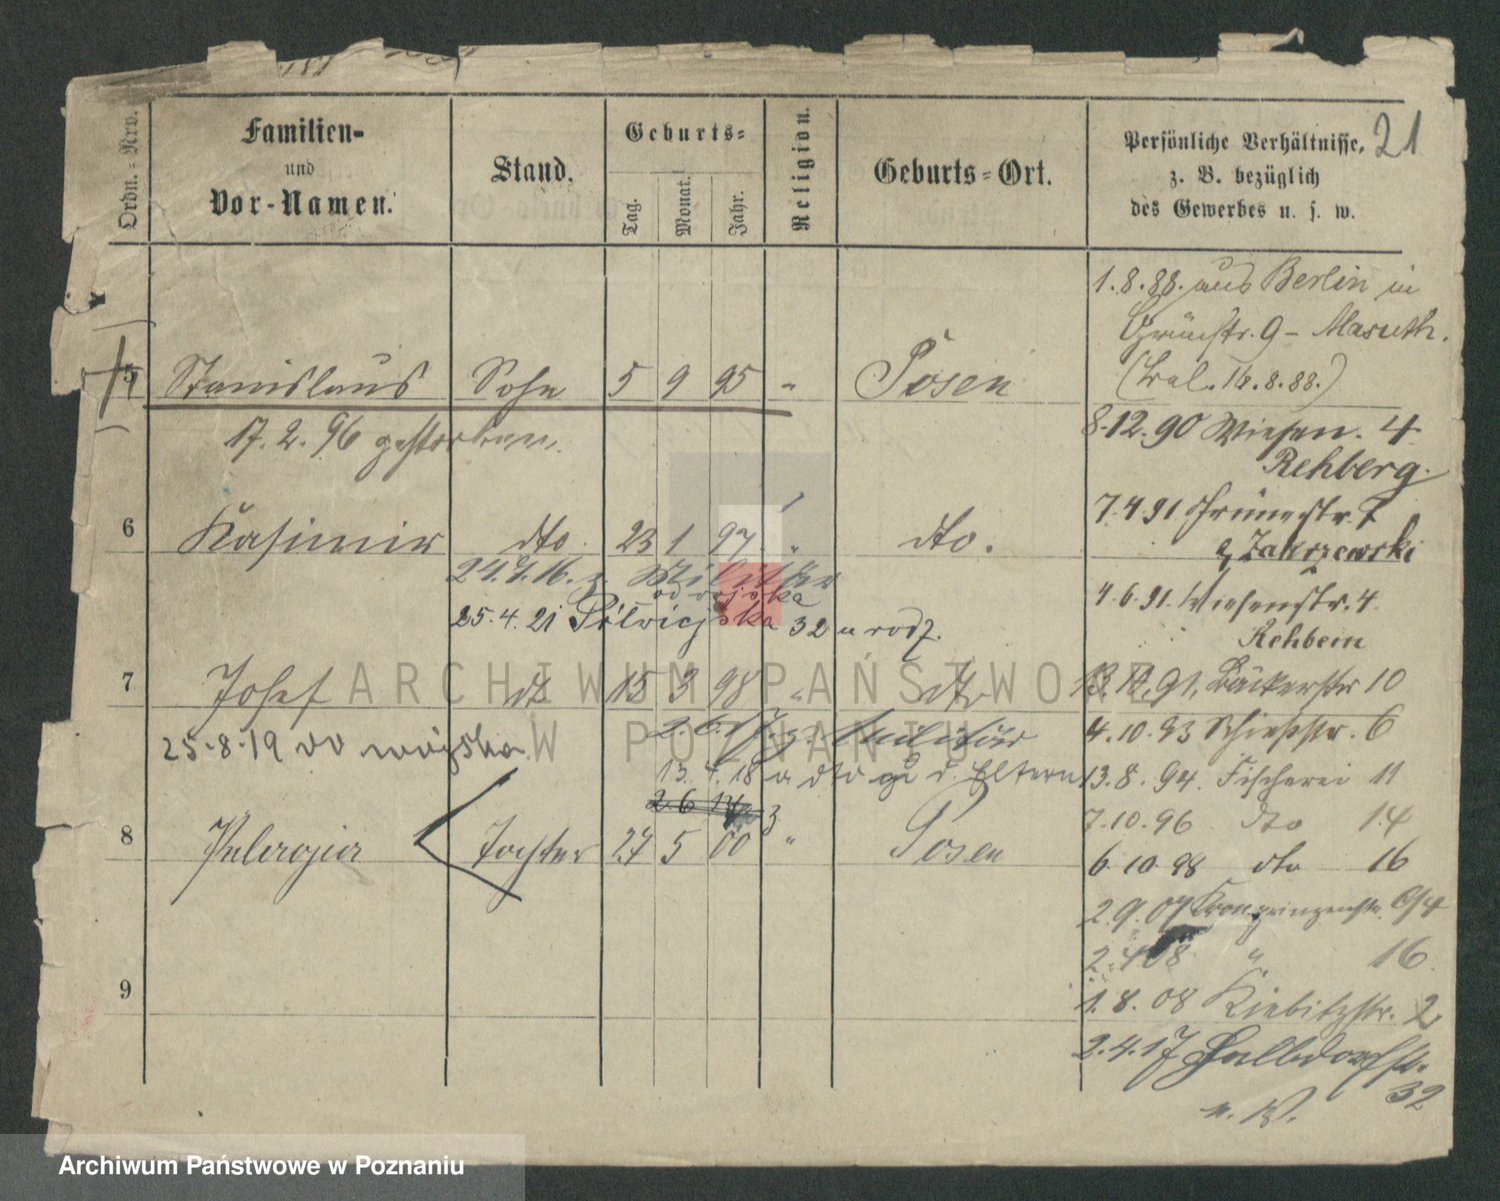 21
Ordn.-Nro.
Familien-
und
Vor-Namen.
Stand.
Geburts-
Tag.
Monat.
Jahr.
Religion.
Geburts-Ort.
Persönliche Verhältnisse,
z. B. bezüglich
des Gewerbes u. s. w.
1.8.88. aus Berlin in
Grünstr. 9 - Masuth.
(Wal. 16.8.88.)
5 Stanislaus Sohn 5 9 95 " Posen
8.12.90 Wiesen. 4
17.2.96 gestorben.
Rehberg.
7.4.91 Grünestr.
6 Kasimir dto. 23 1 97 " dto.
Zakrzewski
24.7.16. z. Militär
od wojska
4.6.91. Wiesenstr. 4.
25.4.21 Półwiejska 32 u rodz.
Rehbein
7 Josef dto 15 3 98 " dto
91. Bäckerstr 10
2.6.17. z. Militär
4.10.93 Schießstr. 6
25-8-19 do wojska
13.4.18 a dto zu d. Eltern
13.8.94. Fischerei 11
2.6.17 z
7.10.96 dto 14
8 Pelagia Tochter 27 5 00 " Posen
6.10.98 dto 16
2.9.07 Kronprinzenstr.
2.4.08 " 16.
9
1.8.08 Kiebitzstr. 2
2.4.17 Halbdorfstr.
32
ARCHIWUM PAŃSTWOWE
W POZNANIU
Archiwum Państwowe w Poznaniu